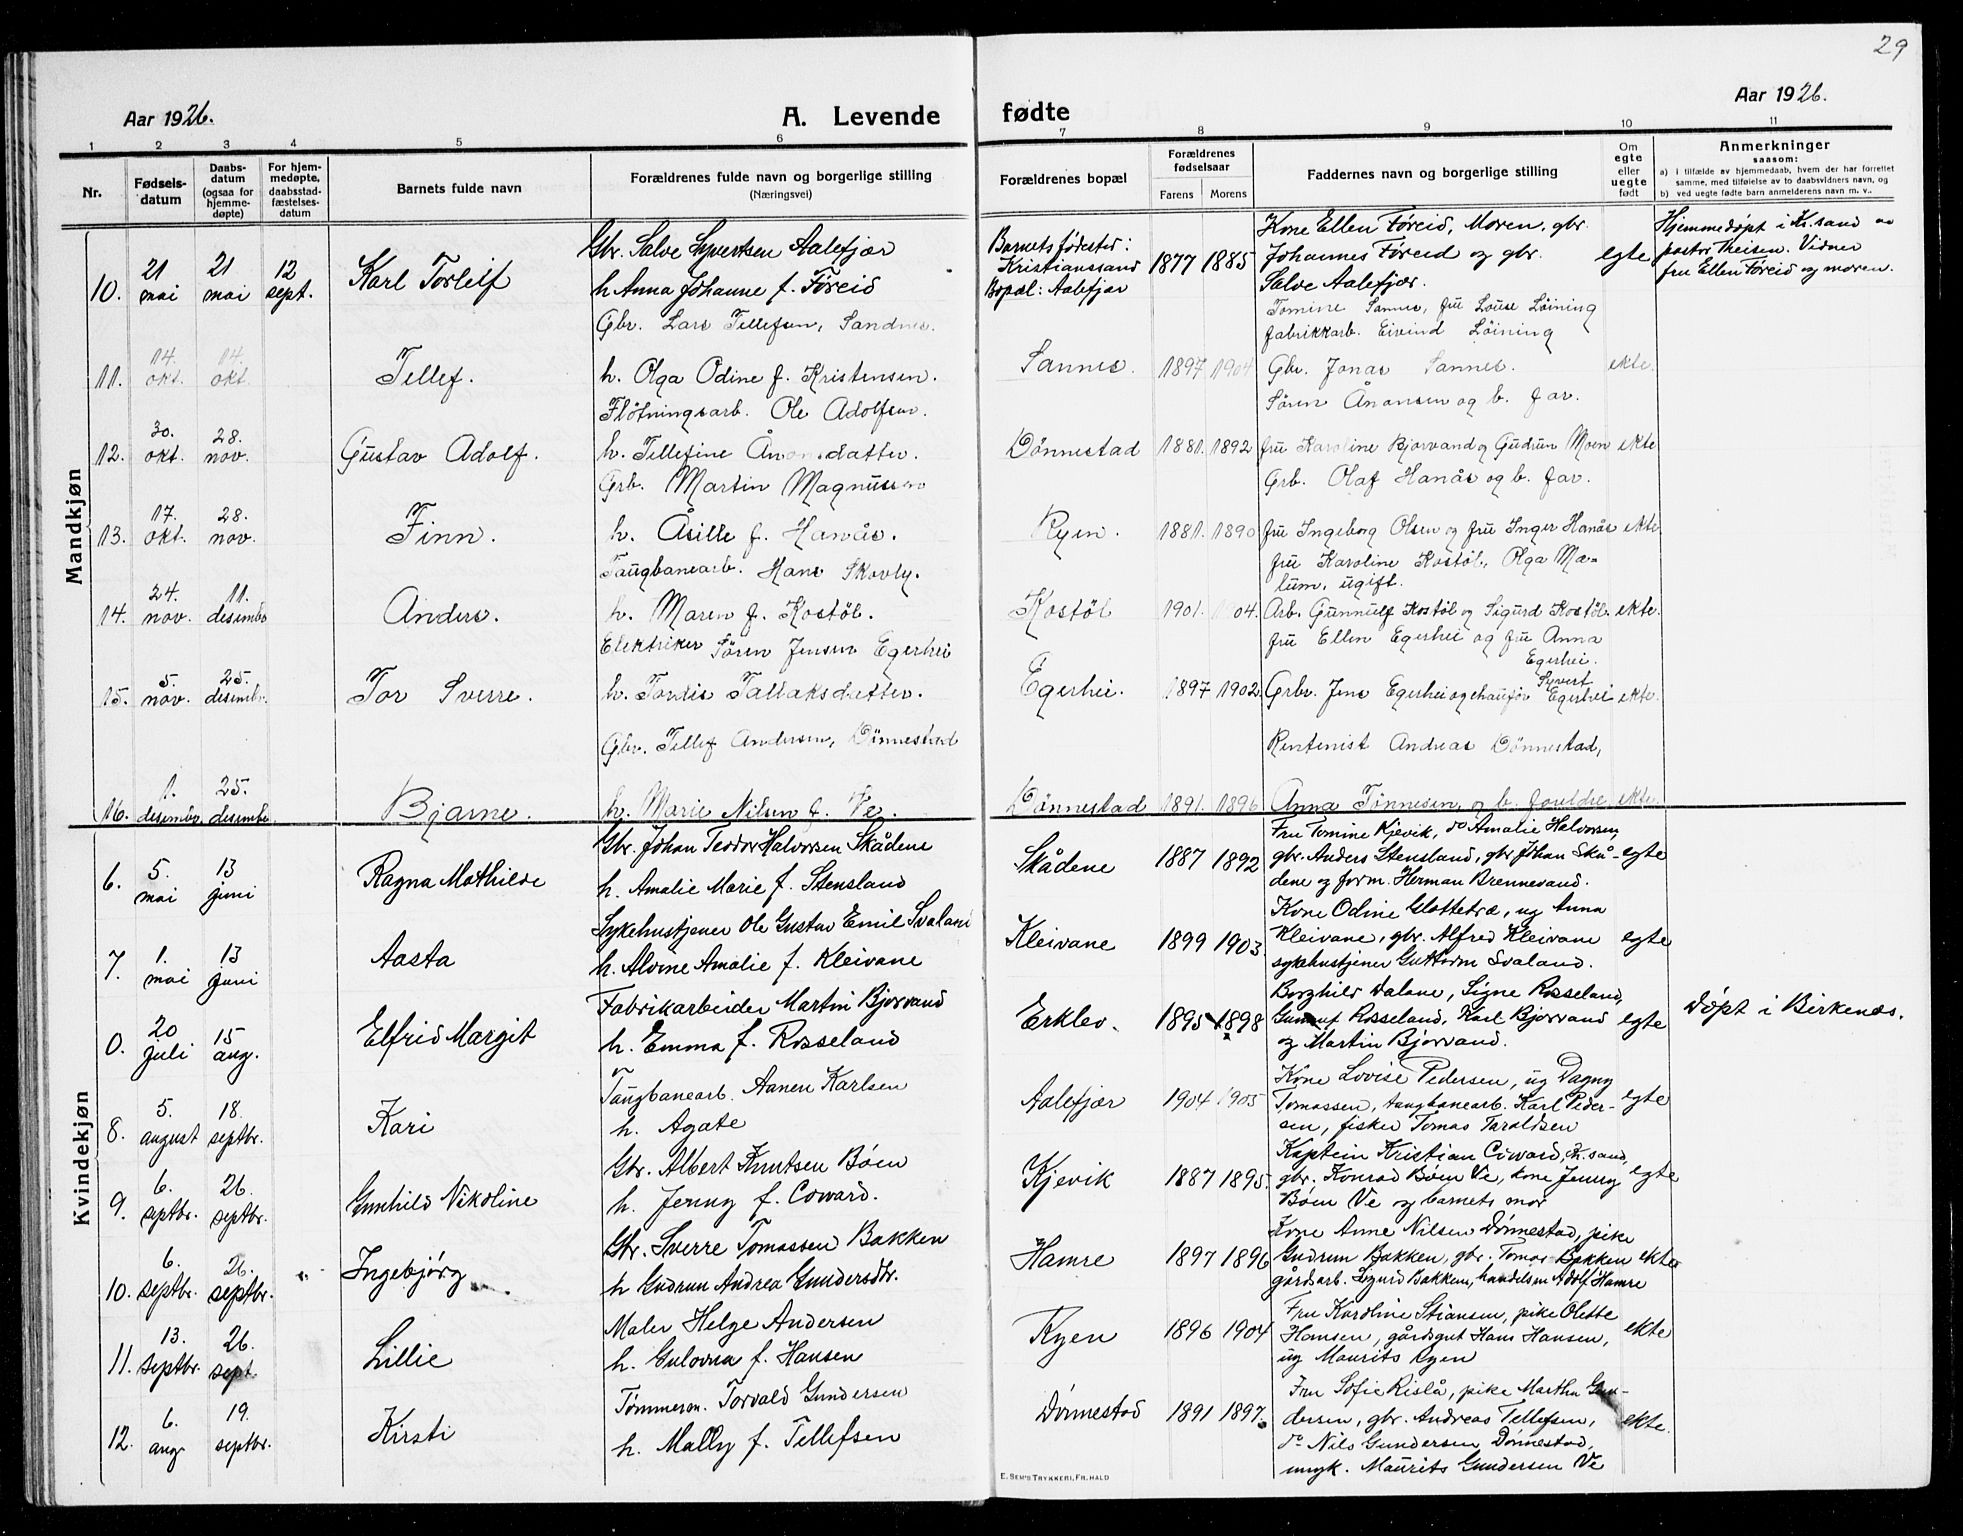 29
Aar 1926.
A. Levende
fødte
Aar 1926.
1 2 3 4 5 6 7 8 9 10 11
Nr.
Fødsels-
datum
Daabs-
datum
(ogsaa for
hjemme-
døpte)
For hjem-
medøpte,
daabsstad-
fæstelses-
datum
Barnets fulde navn
Forældrenes fulde navn og borgerlige stilling
(Næringsvei)
Forældrenes bopæl
Forældrenes
fødselsaar
Farens Morens
Faddernes navn og borgerlige stilling
Om
egte
eller
uegte
født
Anmerkninger
saasom:
a) i tilfælde av hjemmedaab, hvem der har forrettet
samme, med tilføielse av to daabsvidners navn, og
b) ved uegte fødte barn anmelderens navn m. v..
Mandkjøn
10. 21 mai 21 mai 12 sept. Karl Torleif
Gbr. Salve Syvertsen Aalefjær
h. Anna Johanne f. Føreid
Barnets fødested:
Kristianssand
Bopæl: Aalefjær
1877 1885
Kone Ellen Føreid, Moren, gbr.
Johannes Føreid og gbr.
Salve Aalefjær.
egte
Hjemmedøpt i Kr.sand av
pastor Theisen. Vidner
fru Ellen Føreid og moren.
11. 14. okt. 14. okt. Tellef.
Gbr. Lars Tellefsen, Sandnes.
h. Olga Odine f. Kristensen.
Sannes. 1897 1904
Tomine Sannes, fru Louise Löining
fabrikkarb. Eivind Löining
Gbr. Jonas Sannes.
ekte.
12. 30. okt. 28. nov. Gustav Adolf.
Flötningsarb. Ole Adolfsen.
h. Tellefine Ånonsdatter.
Dönnestad 1881. 1892
Sören Ånonsen og b. far.
fru Karoline Bjorvand og Gudrun Moen ekte
13. 17. okt. 28. nov. Finn.
Grb. Martin Magnussen
h. Åsille f. Hanås.
Ryen. 1881. 1890
Grb. Olaf Hanås og b. far.
fru Ingeborg Olsen og fru Inger Hanås ekte
14. 24. nov. 11. desembr Anders.
Taugbanearb. Hans Skovly.
h. Maren f. Kostöl.
Kostöl 1901. 1904.
fru Karoline Kostöl, Olga Mæ-
lum, ugift.
Arb. Gunnulf Kostöl og Sigurd Kostöl. ekte.
15. 5. nov. 25. desembr. Tor Sverre.
Elektriker Sören Jensen Egerhei
h. Tordis Tallaksdatter.
Egerhei. 1897 1902
fru Ellen Egerhei og fru Anna
Egerhei.
Grbr. Jens Egerhei og chaufför Syvert Egerhei ekte.
16. 1. desembr 25. desembr Bjarne.
Gbr. Tellef Andersen, Dönnestad
h. Marie Nilsen f. Ve.
Dönnestad 1891. 1896
Rentenist Andreas Dönnestad,
Anna Tönnesen og b. foreldre ekte.
Kvindekjøn
6. 5. mai 13 juni Ragna Mathilde
Gbr. Johan Teodor Halvorsen Skådene
h. Amalie Marie f. Stensland
Skådene 1887 1892
Fru Tomine Kjevik, do Amalie Halvorsen,
gbr. Anders Stensland, gbr Johan Skå- egte
dene og form. Herman Brennevand.
7. 1. mai 13 juni Aasta
Sykehustjener Ole Gustav Emil Svaland
h. Alvine Amalie f. Kleivane
Kleivane 1899 1903.
Kone Odine Glattetræ, ug Anna
Kleivane, gbr. Alfred Kleivane egte
sykehustjener Guttorm Svaland.
0. 20 juli 15 aug. Elfrid Margit
Fabrikarbeider Martin Bjorvand
h. Emma f. Rosseland
Erklev. 1895 1898
Borghild Dalane, Signe Rosseland,
Gunnuf Rosseland, Karl Bjorvand egte
og Martin Bjorvand.
Døpt i Birkenes.
8. 5. august 18. septbr. Kari
Taugbanearb. Aanen Karlsen
h. Agate
Aalefjær 1904 1905
Kone Lovise Pedersen, ug Dagny
Tomassen, taugbanearb. Karl Peder- egte
sen, fisker Tomas Taraldsen
9. 6. septbr. 26. septbr. Gunhild Nikoline
Gbr. Albert Knutsen Bøen
h. Jenny f. Coward.
Kjevik 1887 1895.
Kaptein Kristian Coward, Kr.sand,
gbr. Konrad Bøen Ve, kone Jenny egte
Bøen Ve og barnets mor
10. 6. septbr. 26. septbr. Ingebjørg
Gbr. Sverre Tomassen Bakken
h Gudrun Andrea Gundersdtr.
Hamre 1897 1896
Kone Anne Nilsen Dønnestad, pike
Gudrun Bakken, gbr. Tomas Bakken ekte
gårdsarb. Sigurd Bakken, handelsm Adolf Hamre
11. 13. septbr. 26. sept. Lillie
Maler Helge Andersen
h. Gulovna f. Hansen
Ryen 1896 1904
Fru Karoline Stiansen, pike Olette
Hansen, gårdsgut Hans Hansen, ekte
ug Maurits Ryen
12. 6. aug 19. septbr. Kirsti
Tømmerm. Torvald Gundersen
h. Mally f. Tellefsen
Dønnestad 1891 1897.
Fru Sofie Rislå, pike Martha Gun-
dersen, gbr. Andreas Tellefsen, ekte.
do Nils Gundersen Dønnestad,
ungk. Maurits Gundersen Ve
E. Sem's Trykkeri, Fr.hald